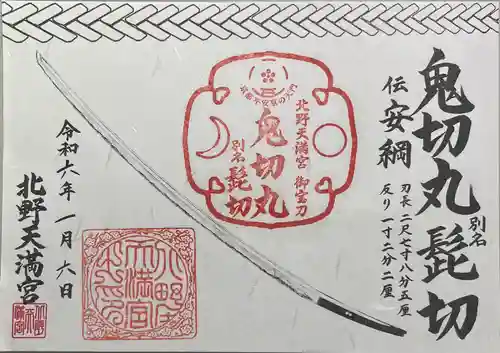 鬼切丸 別名 髭切
伝 安綱
刃長 二尺七寸八分五厘
反り 一寸二分二厘
北野天満宮 御宝刀
鬼切丸
別名 髭切
令和六年 一月 六日
北野天満宮